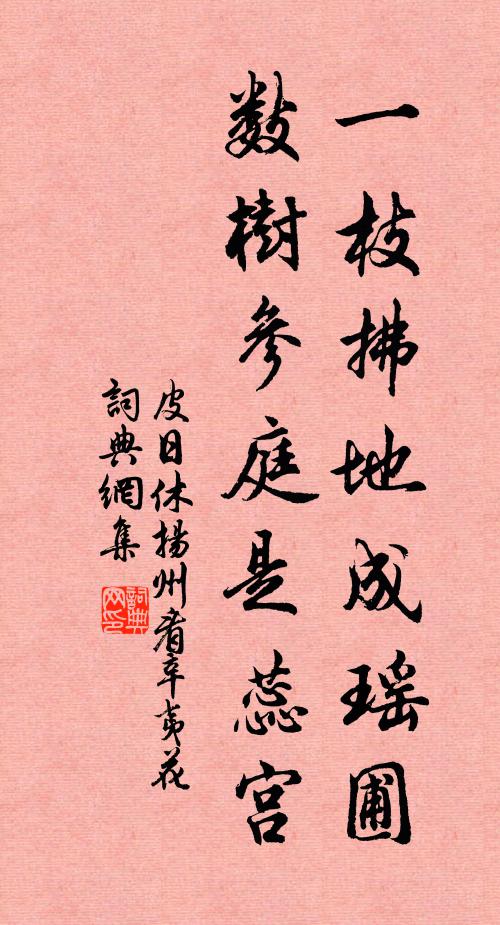 一枝拂地成瑶圃
數樹參庭是蕊宫
皮日休揚州看辛夷花
詞典網集
詞典网印